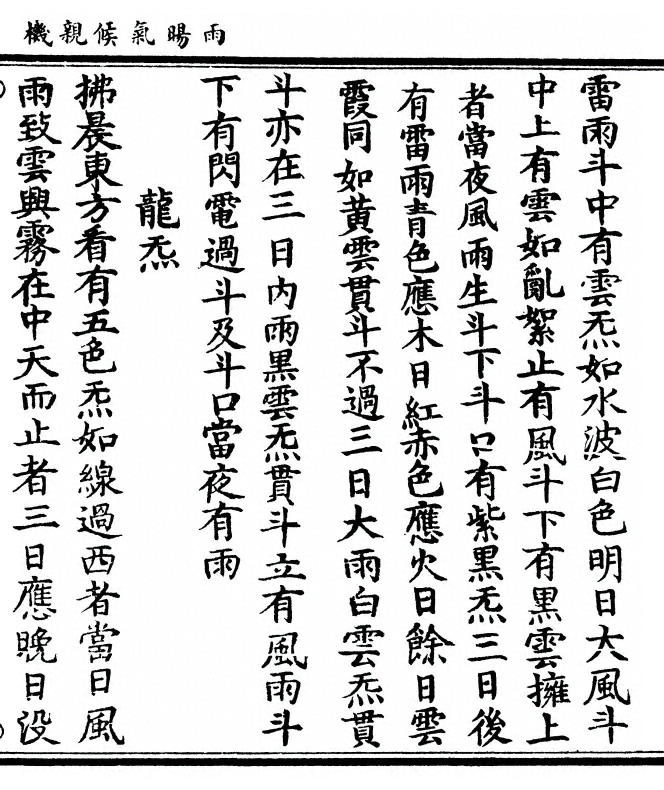 雨暘氣候親機
雷雨斗中有雲炁如水波白色明日大風斗
中上有雲如亂絮止有風斗下有黒雲擁上
者當夜風雨生斗下斗口有紫黒炁三日後
有雷雨青色應木日紅赤色應火日餘日雲
霞同如黄雲貫斗不過三日大雨白雲炁貫
斗亦在三日内雨黒雲炁貫斗立有風雨斗
下有閃電過斗及斗口當夜有雨
龍炁
拂晨東方看有五色炁如線過西者當日風
雨致雲興霧在中天而止者三日應晚日没